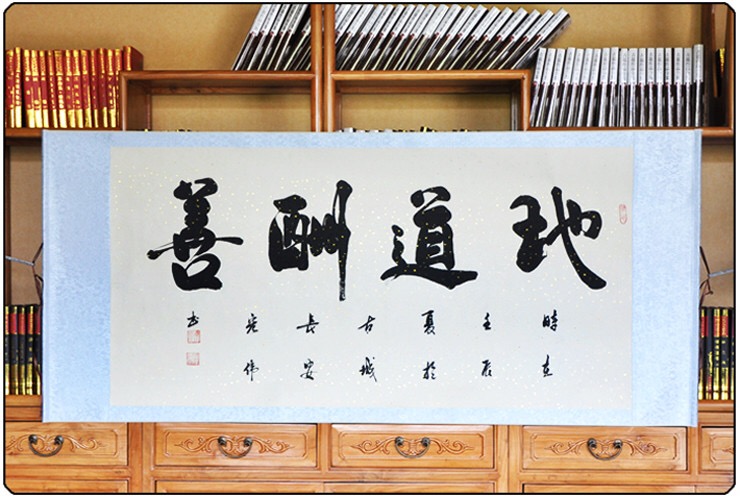 地道酬善
時在
壬辰
夏於
古城
長安
书